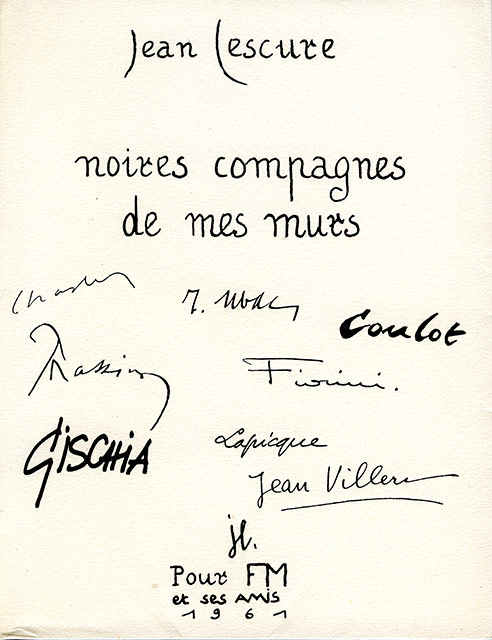 Jean Lescure
noires compagnes
de mes murs
Coulot
Fiorini.
GiSCHiA
Lapicque
Jean Villeri
jl.
Pour FM
et ses AMiS
1961